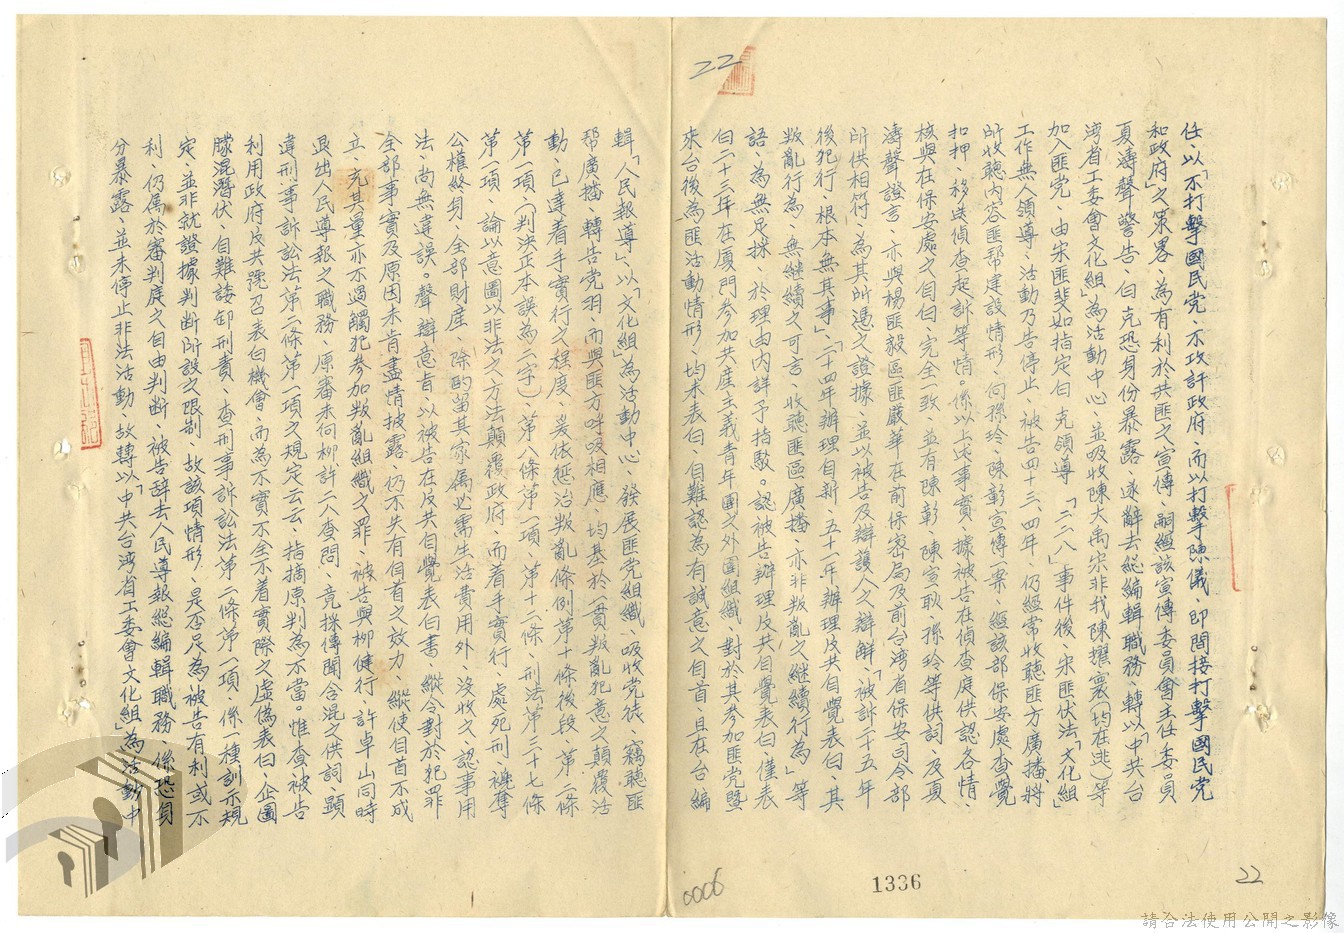 22
任、以「不打擊國民党、不攻訐政府、而以打擊陳儀、即間接打擊國民党
和政府」之策畧、為有利於共匪之宣傳、嗣經該宣傳委員會主任委員
夏濤聲警告、白克恐身份暴露、遂辭去總編輯職務、轉以「中共台
湾省工委會文化組」為活動中心、並吸收陳大禹宋非我陳耀寰(均在逃)等
加入匪党、由宋匪斐如指定白克領導、「二二八」事件後、宋匪伏法「文化組」
工作無人領導、活動乃告停止、被告四十三、四年、仍經常收聽匪方廣播將
所收聽內容匪帮建設情形、向孫玲、陳彰宣傳一案、經該部保安處查覺
扣押、移送偵查起訴等情。係以上述事實、據被告在偵查庭供認各情、
核與在保安處之自白、完全一致、並有陳彰、陳宣耿、孫玲等供詞、及夏
濤聲證言、亦與楊匪毅區匪嚴華在前保密局及前台湾省保安司令部
所供相符、為其所憑之證據、並以被告及辯護人之辯解、「被訴二十五年
後犯行、根本無其事」、「二十四年辦理自新、五十一年辦理反共自覺表白、其
叛亂行為、無繼續之可言、收聽匪區廣播、亦非叛亂之繼續行為」等
語、為無足採、於理由內詳予指駁。認被告辦理反共自覺表白僅表
白二十三年在厦門參加共產主義青年團之外圍組織、對於其參加匪党暨
來台後為匪活動情形、均未表白、自難認為有誠意之自首、且在台編
輯「人民報導」、以「文化組」為活動中心、發展匪党組織、吸收党徒、竊聽匪
帮廣播、轉告党羽、而與匪方呼吸相應、均基於一貫叛亂犯意之顛覆活
動、已達着手實行之程度、爰依懲治叛亂條例第十條後段、第二條
第一項、(判決正本誤為二字)、第八條第一項、第十二條、刑法第三十七條
第一項、論以意圖以非法之方法顛覆政府、而着手實行、處死刑、褫奪
公權終身、全部財產、除酌留其家属必需生活費用外、沒收之、認事用
法、尚無違誤。聲辯意旨、以被告在反共自覺表白書、縱令對於犯罪
全部事實及原因未肯盡情披露、仍不失有自首之效力、縱使自首不成
立、充其量亦不過觸犯參加叛亂組織之罪、被告與柳健行、許卓山同時
退出人民導報之職務、原審未向柳、許二人查問、竟採傳聞含混之供詞、顯
違刑事訴訟法第二條第一項之規定云云、指摘原判為不當。惟查被告
利用政府反共號召表白機會、而為不實不全不着實際之虛偽表白、企圖
矇混潛伏、自難諉卸刑責、查刑事訴訟法第二條第一項、係一種訓示規
定、並非就證據判斷所設之限制、故該項情形、是否足為被告有利或不
利、仍属於審判庭之自由判断、被告辞去人民導報總編輯職務、係恐身
分暴露、並未停止非法活動、故轉以「中共台湾省工委會文化組」為活動中
0006
1336
22
請合法使用公開之影像